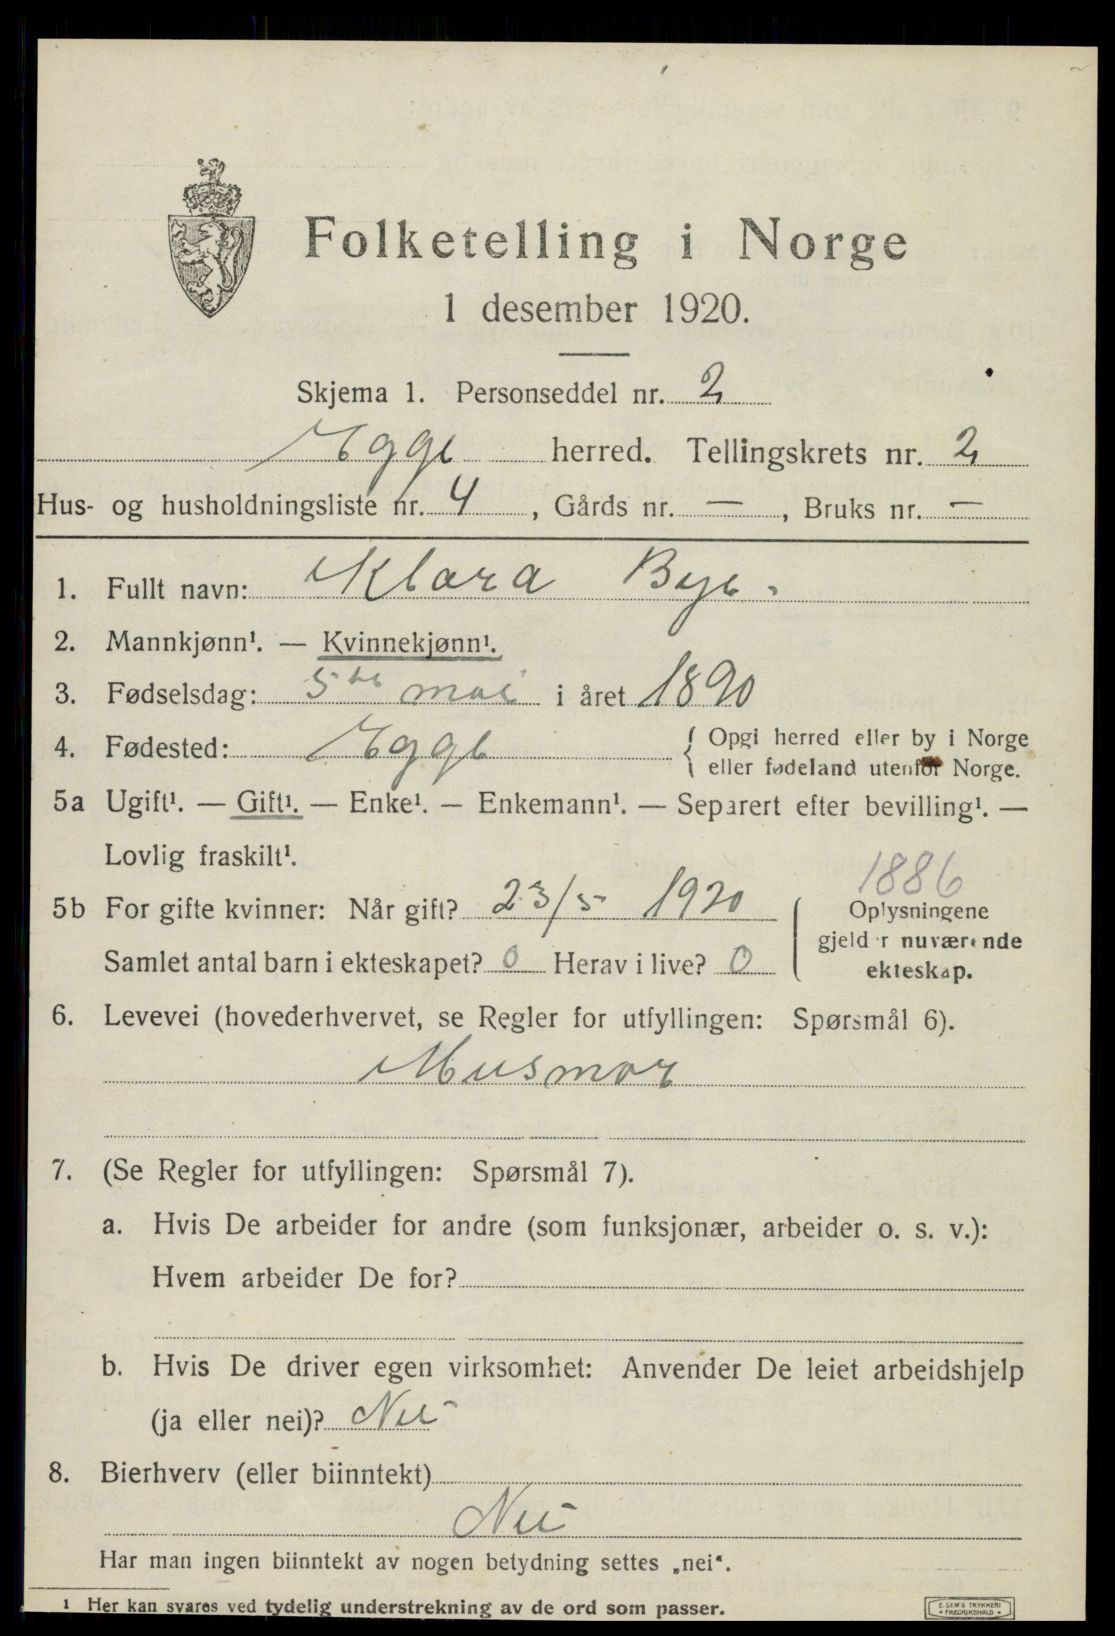 Folketelling i Norge
1 desember 1920.
Skjema 1. Personseddel nr. 2
Egge herred. Tellingskrets nr. 2
Hus- og husholdningsliste nr. 4, Gårds nr. —, Bruks nr. —
1. Fullt navn: Klara Bye.
2. Mannkjønn¹. — Kvinnekjønn¹.
3. Fødselsdag: 5te mai i året 1890
4. Fødested: Egge { Opgi herred eller by i Norge
eller fødeland utenfor Norge.
5a Ugift¹. — Gift¹. — Enke¹. — Enkemann¹. — Separert efter bevilling¹. —
Lovlig fraskilt¹.
1886
5b For gifte kvinner: Når gift? 23/5 1920 ( Oplysningene
gjelder nuværende
Samlet antal barn i ekteskapet? 0 Herav i live? 0 ekteskap.
6. Levevei (hovederhvervet, se Regler for utfyllingen: Spørsmål 6).
Husmor
7. (Se Regler for utfyllingen: Spørsmål 7).
a. Hvis De arbeider for andre (som funksjonær, arbeider o. s. v.):
Hvem arbeider De for?
b. Hvis De driver egen virksomhet: Anvender De leiet arbeidshjelp
(ja eller nei)? Nei
8. Bierhverv (eller biinntekt)
Nei
Har man ingen biinntekt av nogen betydning settes „nei“.
1 Her kan svares ved tydelig understrekning av de ord som passer.
E. SEM'S TRYKKERI
• FREDRIKSHALD •